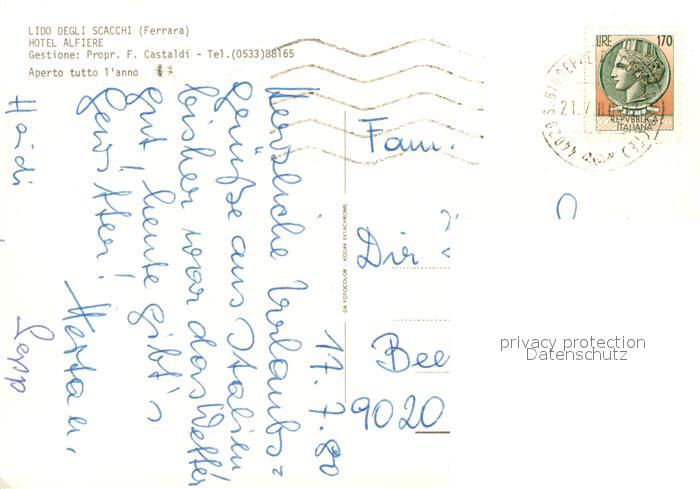 LIDO DEGLI SCACCHI (Ferrara)
HOTEL ALFIERE
Gestione: Propr. F. Castaldi - Tel.(0533)88165
Aperto tutto l'anno
LIRE 170
REPVBBLICA
ITALIANA
21.7
44020 S.GIUSEPPE
DA FOTOCOLOR KODAK EKTACHROME
17.7.80
Herzliche Urlaubs=
grüße aus Italien
bisher war das Wetter
gut, heute gibt's
Gewitter!
Herta u.
Sepp
Haidi
Fam.
Dir
Bee
9020
privacy protection
Datenschutz